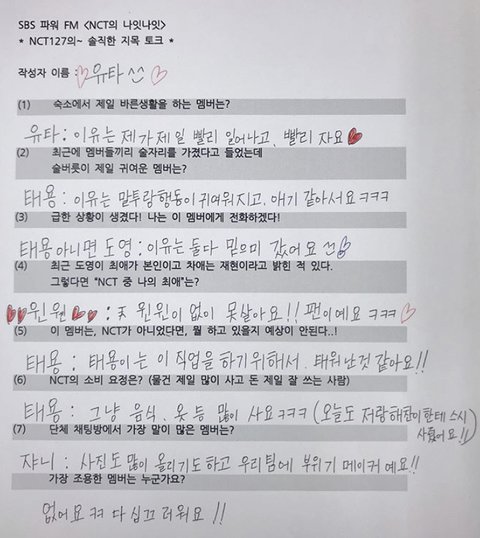 SBS 파워 FM <NCT의 나잇나잇>
* NCT127의~ 솔직한 지목 토크 *
작성자 이름 : ♡유타 ^^ ♡
(1) 숙소에서 제일 바른생활을 하는 멤버는?
유타 : 이유는 제가 제일 빨리 일어나고, 빨리 자요♥
(2) 최근에 멤버들끼리 술자리를 가졌다고 들었는데
술버릇이 제일 귀여운 멤버는?
태용 : 이유는 말투랑 행동이 귀여워지고, 애기 같아서요 ㅋㅋㅋ
(3) 급한 상황이 생겼다! 나는 이 멤버에게 전화하겠다!
태용 아니면 도영 : 이유는 둘다 믿으미 갔어요 ^^
(4) 최근 도영이 최애가 본인이고 차애는 재현이라고 밝힌 적 있다.
그렇다면 "NCT 중 나의 최애"는?
♥♥윈윈♥♥ : 天 윈윈이 없이 못살아요!! 팬이예요 ㅋㅋㅋ♡
(5) 이 멤버는, NCT가 아니었다면, 뭘 하고 있을지 예상이 안된다..!
태용 : 태용이는 이 직업을 하기위해서. 태워난것 같아요!!
(6) NCT의 소비 요정은? (물건 제일 많이 사고 돈 제일 잘 쓰는 사람)
태용 : 그냥 음식. 옷 등 많이 사요 ㅋㅋㅋ (오늘도 저랑 해찬이한테 스시
사줬어요!!)
(7) 단체 채팅방에서 가장 말이 많은 멤버는?
쟈니 : 사진도 많이 올리기도하고 우리팀에 부위기 메이커예요!!
가장 조용한 멤버는 누군가요?
없어요 ㅋㅋ 다 십끄러워요 !!